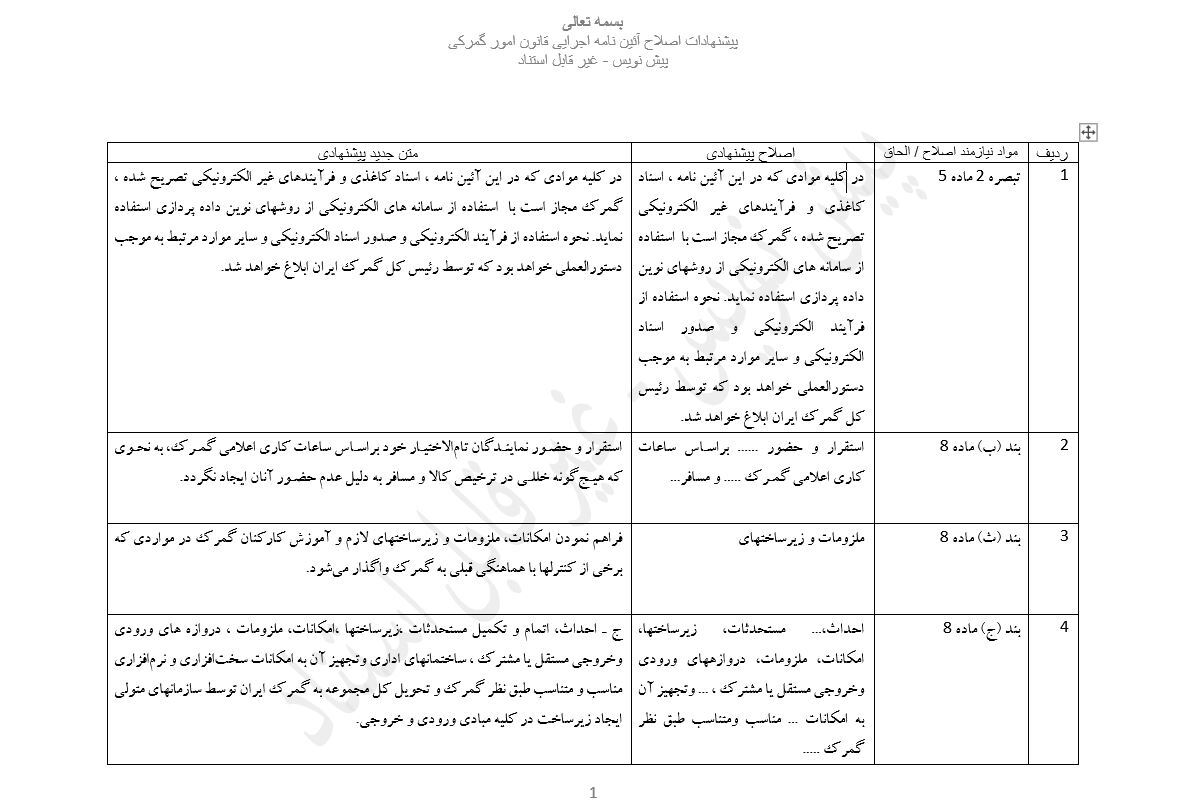 بسمه تعالی
پیشنهادات اصلاح آئین نامه اجرایی قانون امور گمرکی
پیش نویس - غیر قابل استناد
ردیف
مواد نیازمند اصلاح / الحاق
اصلاح پیشنهادی
متن جدید پیشنهادی
1
تبصره 2 ماده 5
در کلیه موادی که در این آئین نامه ، اسناد
کاغذی و فرآیندهای غیر الکترونیکی
تصریح شده ، گمرک مجاز است با استفاده
از سامانه های الکترونیکی از روشهای نوین
داده پردازی استفاده نماید. نحوه استفاده از
فرآیند الکترونیکی و صدور اسناد
الکترونیکی و سایر موارد مرتبط به موجب
دستورالعملی خواهد بود که توسط رئیس
کل گمرک ایران ابلاغ خواهد شد.
در کلیه موادی که در این آئین نامه ، اسناد کاغذی و فرآیندهای غیر الکترونیکی تصریح شده ،
گمرک مجاز است با استفاده از سامانه های الکترونیکی از روشهای نوین داده پردازی استفاده
نماید. نحوه استفاده از فرآیند الکترونیکی و صدور اسناد الکترونیکی و سایر موارد مرتبط به موجب
دستورالعملی خواهد بود که توسط رئیس کل گمرک ایران ابلاغ خواهد شد.
2
بند (ب) ماده 8
استقرار و حضور ...... براساس ساعات
کاری اعلامی گمرک ..... و مسافر...
استقرار و حضور نمایندگان تام‌الاختیار خود براساس ساعات کاری اعلامی گمرک، به نحوی
که هیچ‌گونه خللی در ترخیص کالا و مسافر به دلیل عدم حضور آنان ایجاد نگردد.
3
بند (ث) ماده 8
ملزومات و زیرساختهای
فراهم نمودن امکانات، ملزومات و زیرساختهای لازم و آموزش کارکنان گمرک در مواردی که
برخی از کنترلها با هماهنگی قبلی به گمرک واگذار می‌شود.
4
بند (ج) ماده 8
احداث،... مستحدثات، زیرساختها،
امکانات، ملزومات، دروازههای ورودی
وخروجی مستقل یا مشترک ، ... وتجهیز آن
به امکانات ... مناسب ومتناسب طبق نظر
گمرک .....
ج ـ احداث، اتمام و تکمیل مستحدثات ،زیرساختها ،امکانات، ملزومات ، دروازه های ورودی
وخروجی مستقل یا مشترک ، ساختمانهای اداری وتجهیز آن به امکانات سخت‌افزاری و نرم‌افزاری
مناسب و متناسب طبق نظر گمرک و تحویل کل مجموعه به گمرک ایران توسط سازمانهای متولی
ایجاد زیرساخت در کلیه مبادی ورودی و خروجی.
پیش نویس - غیر قابل استناد
1